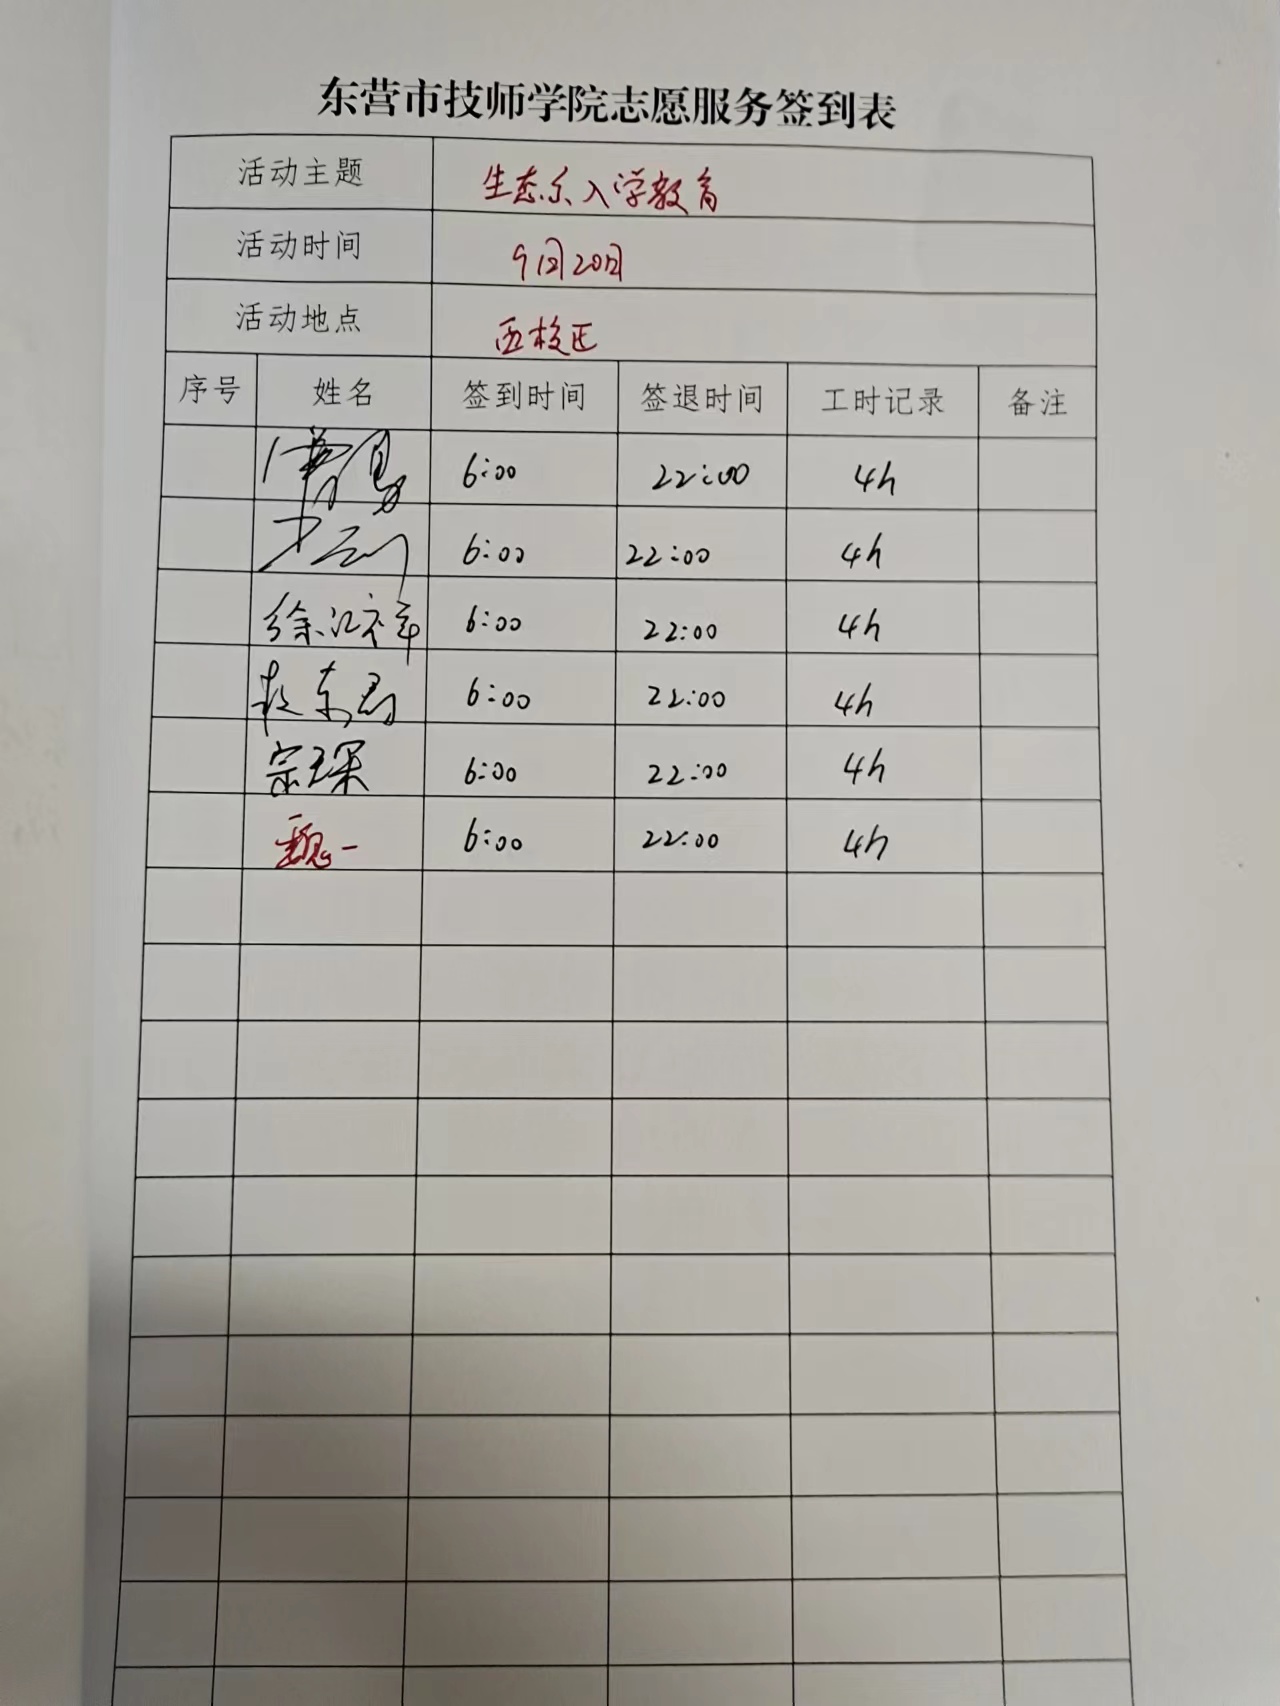 东营市技师学院志愿服务签到表
活动主题 生态系入学教育
活动时间 9月20日
活动地点 西校区
序号 姓名 签到时间 签退时间 工时记录 备注
6:00 22:00 4h
6:00 22:00 4h
徐 6:00 22:00 4h
6:00 22:00 4h
宗琛 6:00 22:00 4h
魏一 6:00 22:00 4h